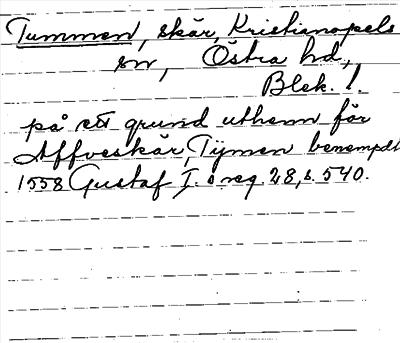 Tummen, skär, Kristianopels
sn, Östra hd,
Blek. l.
på ett grund uthenn för
Affveskär, Tijmen benempdt
1558 Gustaf I:s reg. 28, s. 540.